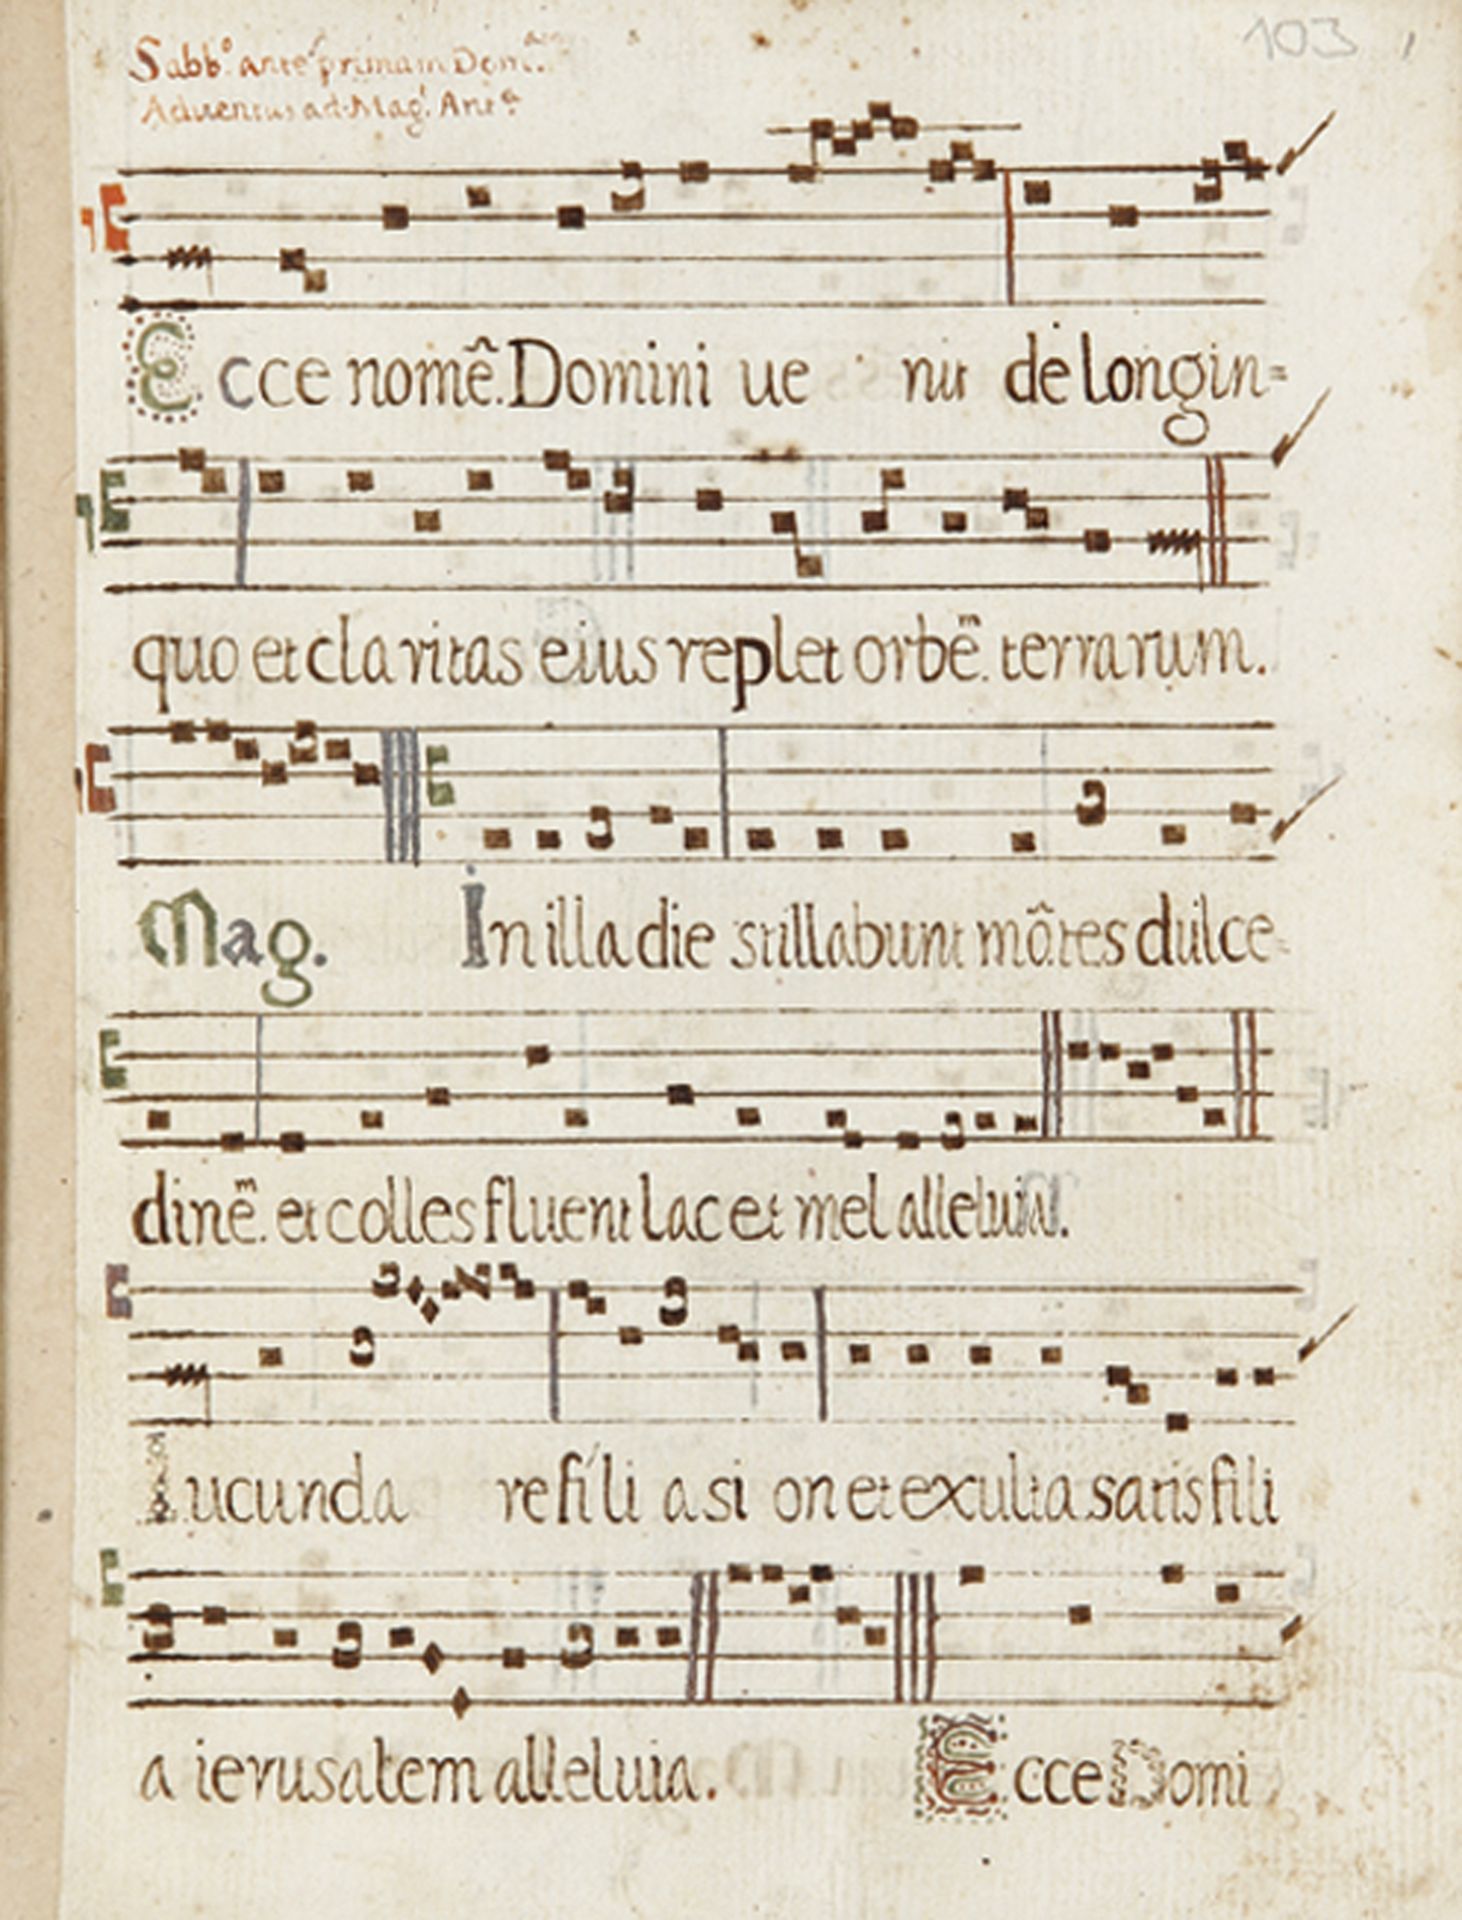 103
Sabb.º ante primam Dom.
Aduentus ad Mag. Ant.ª
Ecce nomẽ. Domini ue nit de longin=
quo et claritas eius replet orbẽ.ᵐ terrarum.
Mag. In illa die stillabunt mõ.tes dulce=
dinẽ.ᵐ et colles fluent lac et mel alleluia.
Iucunda re fíli a si on et exulta satis fili
a ierusalem alleluia. Ecce Domi